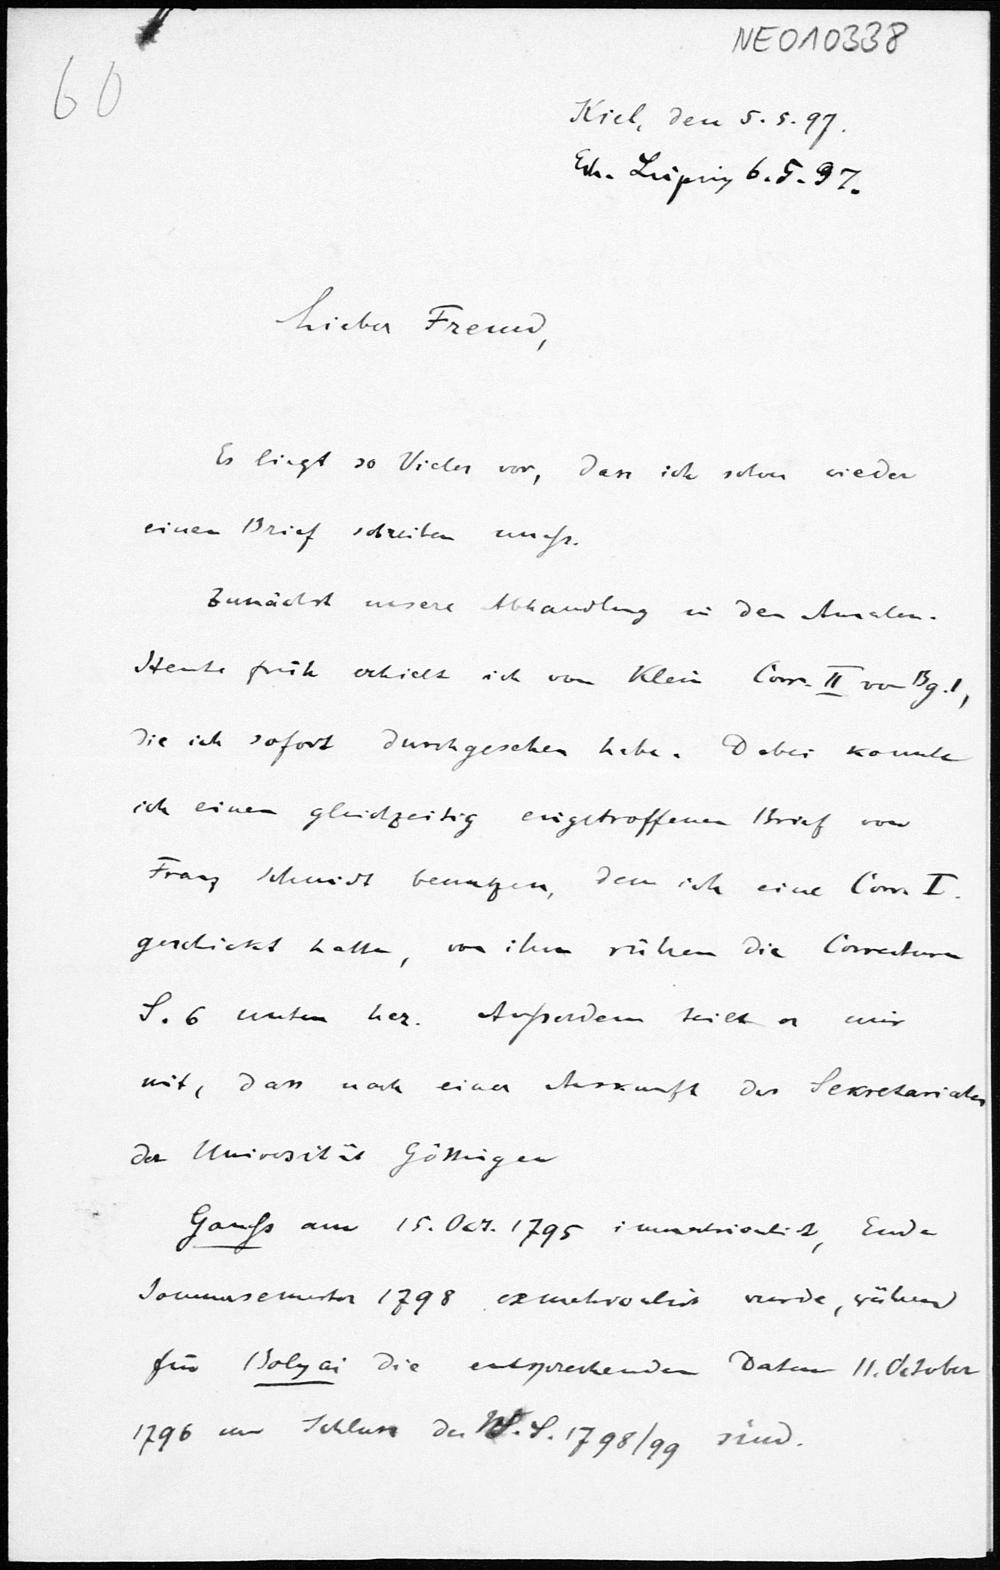 NE010338
60
Kiel, den 5.5.97.
Erh. Leipzig 6.5.97.
Lieber Freund,
Es liegt so Vieles vor, dass ich schon wieder
einen Brief schreiben muß.
Zunächst unsere Abhandlung in den Annalen.
Heute früh erhielt ich von Klein Corr. II von Bg. 1,
die ich sofort durchgesehen habe. Dabei konnte
ich einen gleichzeitig eingetroffenen Brief von
Franz Schmidt benutzen, dem ich eine Corr. I.
geschickt hatte, von ihm rühren die Correcturen
S. 6 unten her. Außerdem teilt er mir
mit, dass nach einer Auskunft des Sekretariates
der Universität Göttingen
Gauß am 15. Oct. 1795 immatriculirt, Ende
Sommersemester 1798 exmatriculirt wurde, während
für Bolyai die entsprechenden Daten 11. October
1796 und Schluss des W.S. 1798/99 sind.